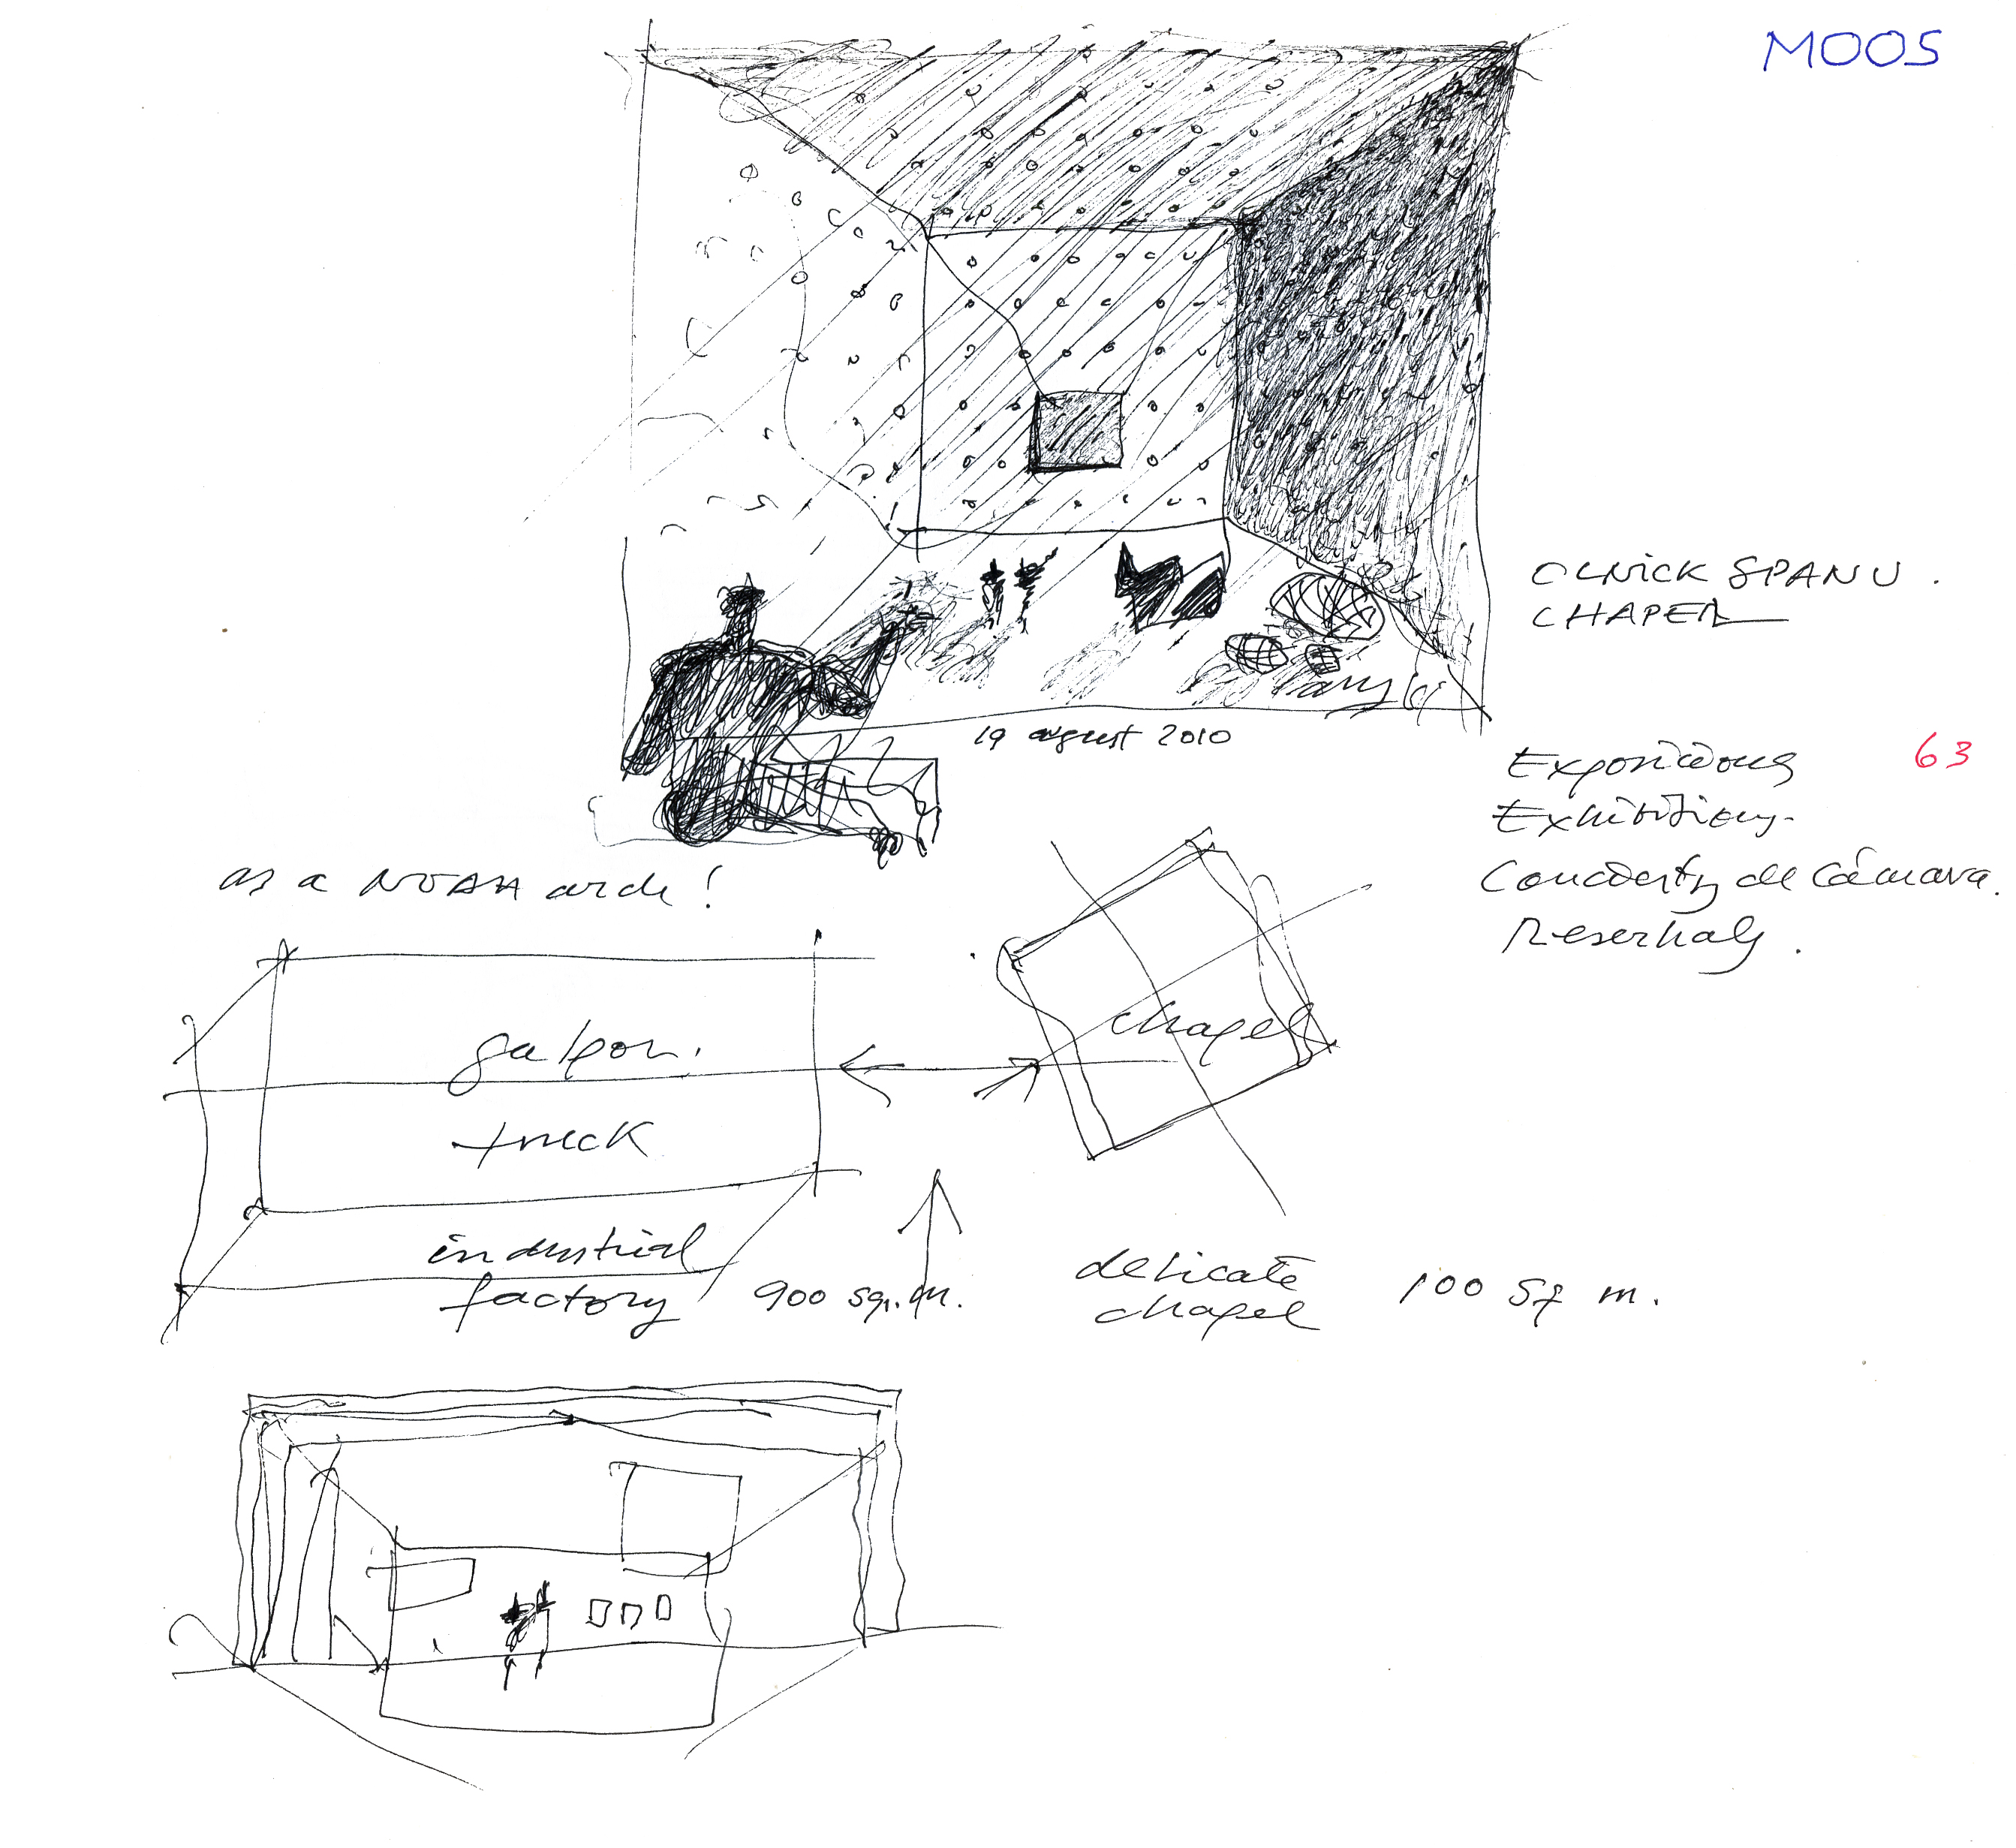 MOOS
OLNICK SPANU.
CHAPEL
19 august 2010
Exposicions 63
Exhibitions.
Concierts de Cámara.
Reserhals.
as a NOAH arch!
galpon.
chapel
truck
industrial
factory 900 sq.m.
delicate
chapel 100 sq m.